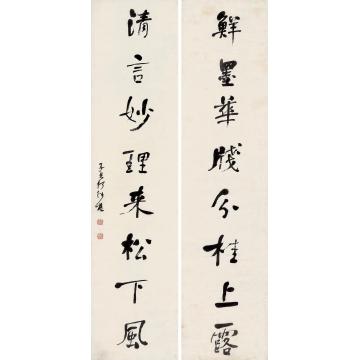 鮮墨華牋分桂上露
清言妙理来松下風